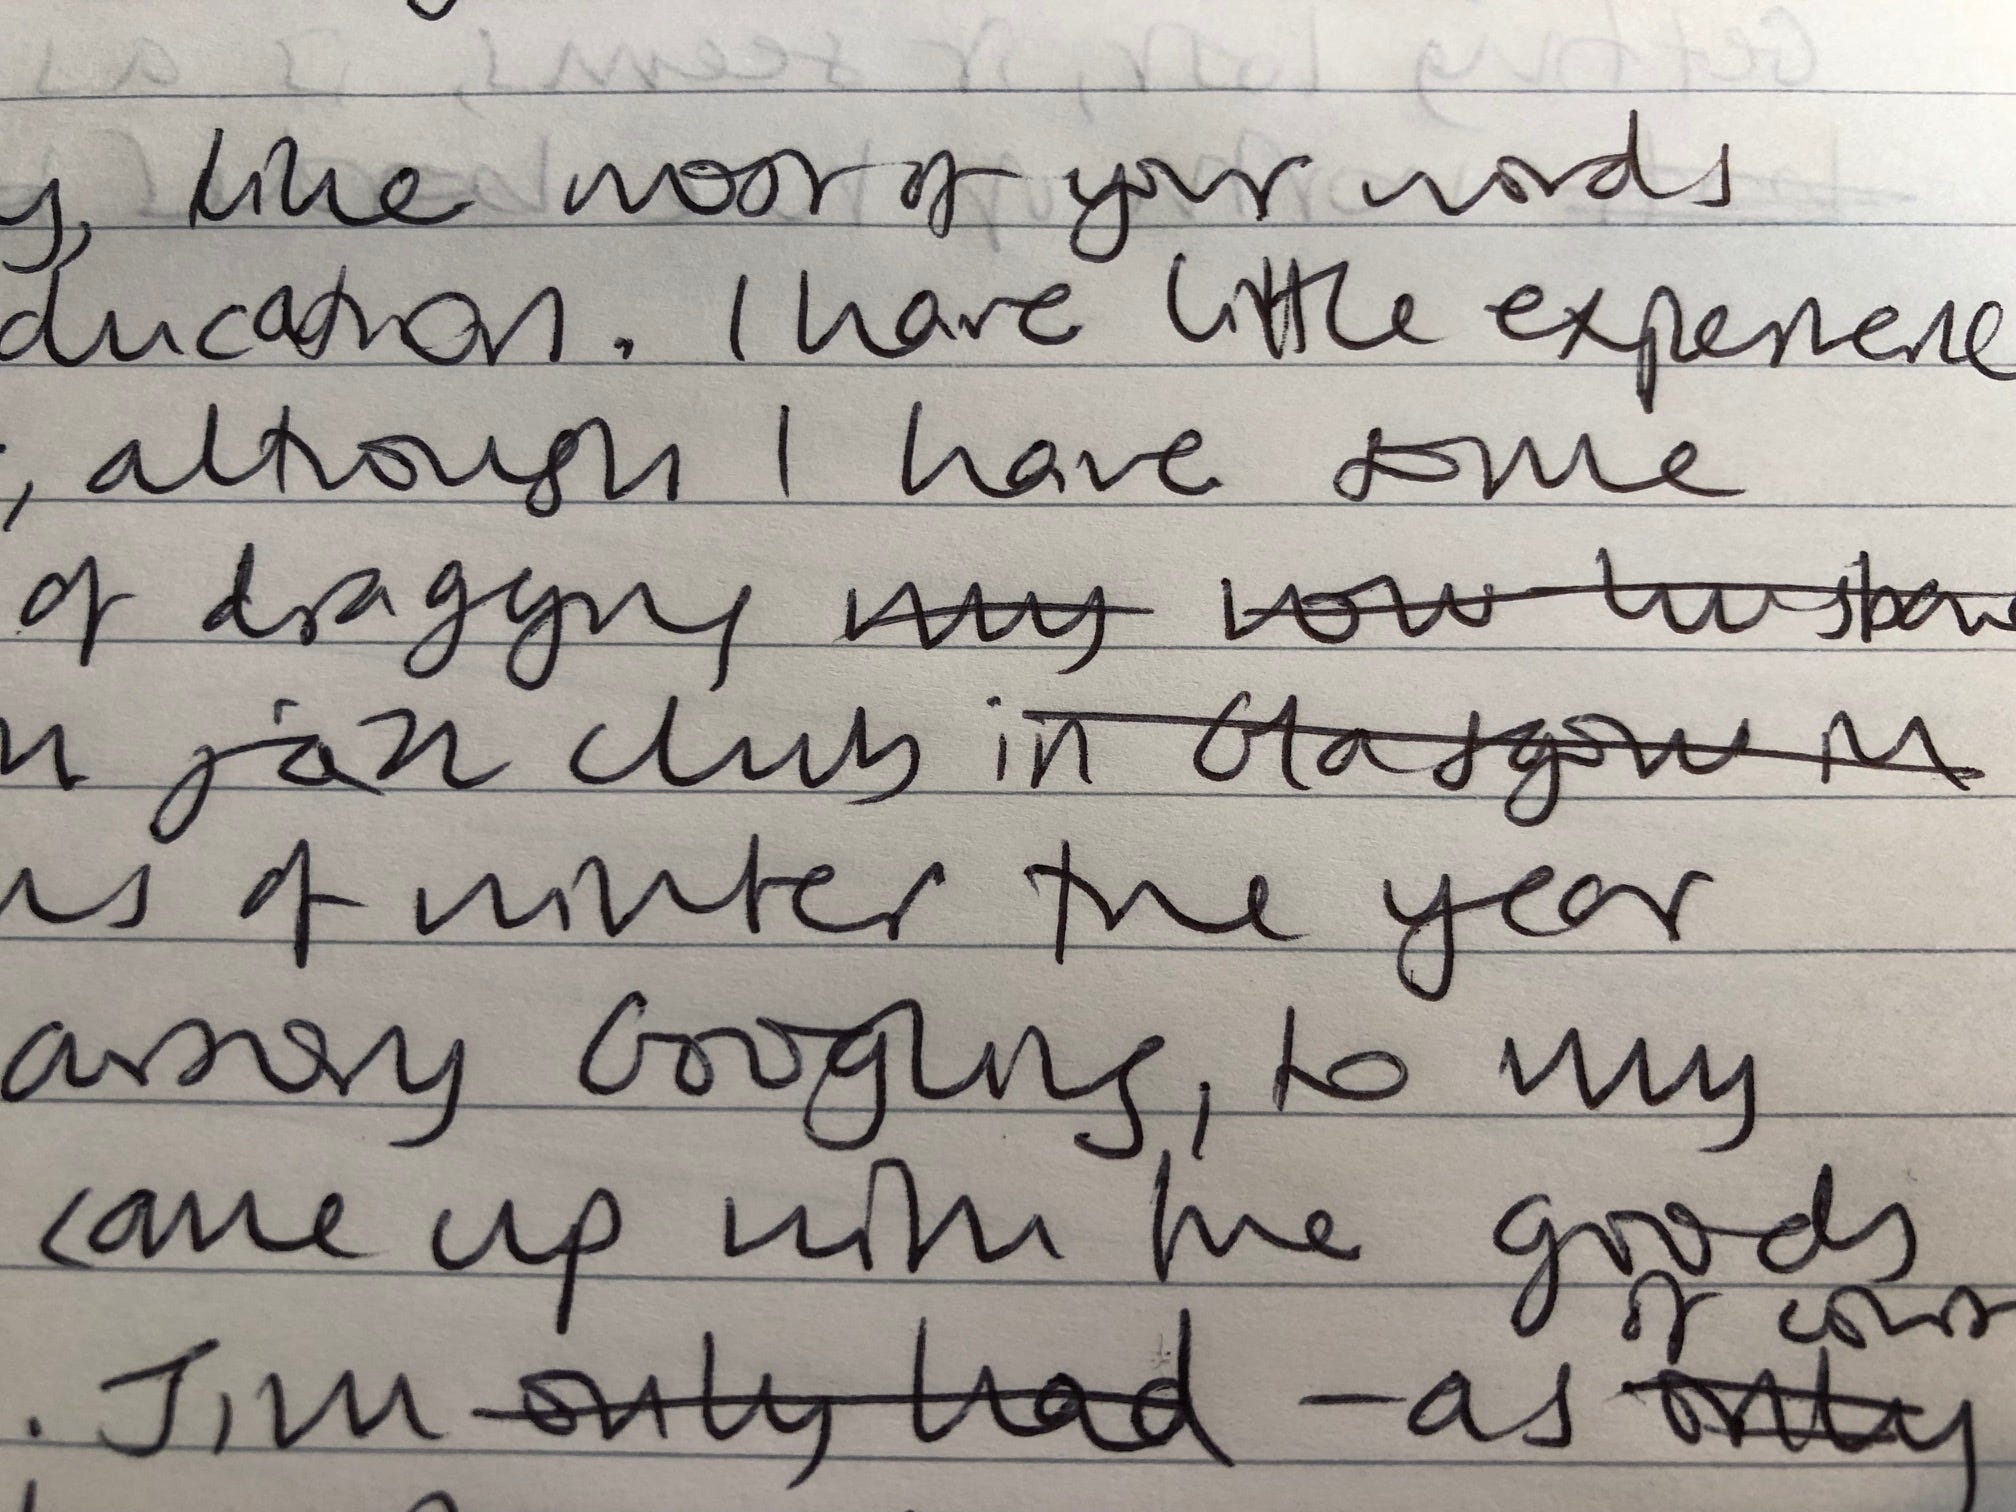 y, like most of your words
ducation. I have little experience
, although I have some
of dragging my now husban
n jazz club in Glasgow in
ns of winter the year
Googling, to my
came up with the goods
of cours
. Jim only had - as only